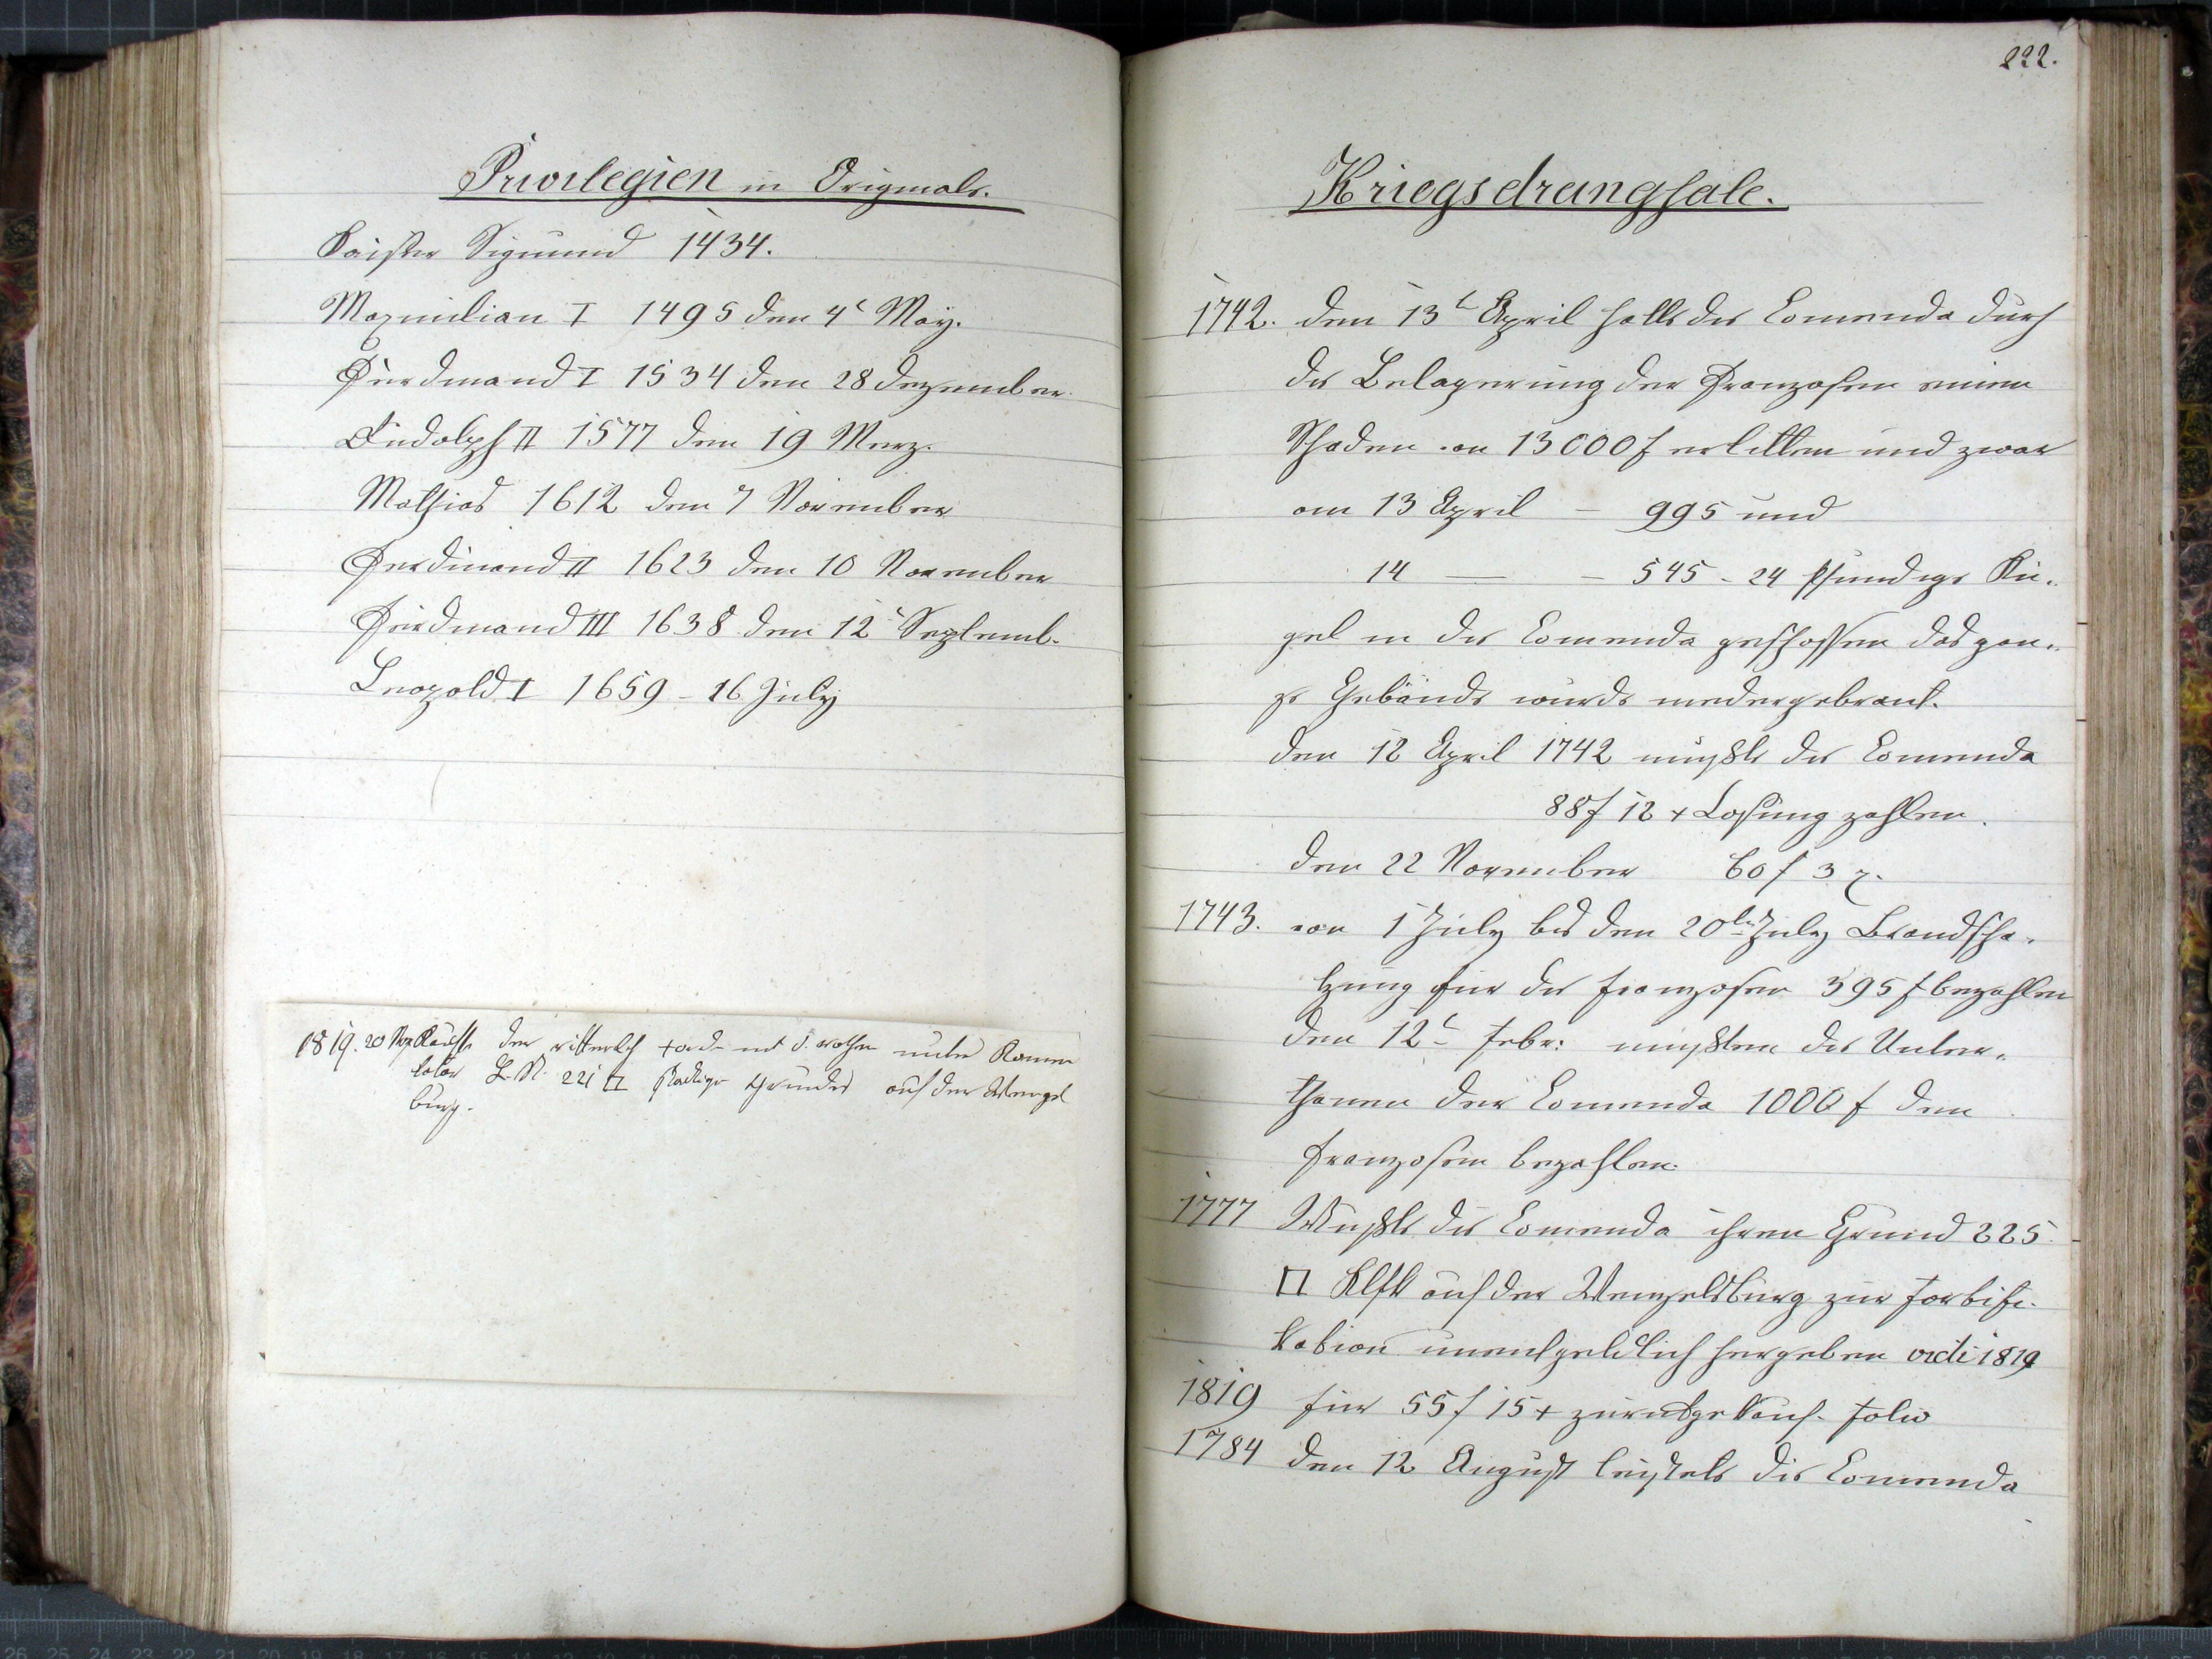 Privilegien in Originale.
Kaiser Sigmund 1434.
Maxmilian I 1495 den 4t May.
Ferdinand I 1534 den 28 Dezember.
Rudolph II 1577 den 19 Merz.
Mathias 1612 den 7 November
Ferdinand II 1623 den 10 November
Ferdinand III 1638 den 12t Septemb.
Leopold I 1659 - 16 July
1819. 20 kaufte der ritterlich Orden mit d. rothen
L. N. 221 □ Grundes auf der Wenzel
burg.
222.
Kriegsdrangsale.
1742. den 13t April hatte die Comenda durch
die Belagerung der Franzosen einen
Schaden von 13000 f erlitten und zwar
am 13 April - 995 und
14 — - 545 - 24 pfundige Ku-
gel in die Comenda geschossen das gan-
ze Gebäude wurde niedergebrant.
den 12 April 1742 mußte die Comenda
88 f 12 x Losung zahlen.
den 22 November 60 f 3
1743. von 1 July bis den 20ten July Brandscha-
tzung für die Franzosen 395 f bezahlen
den 12t Febr: mußten die Unter-
thanen der Comenda 1000 f den
Franzosen bezahlen.
1777 Mußte die Comenda ihren Grund 225
□ Klft auf der Wenzelsburg zur Fortifi-
kation unentgeldlich hergeben vidi 1819
1819 für 55 f 15 x zurückgekauf. Folio
1784 den 12 August leistete die Comenda